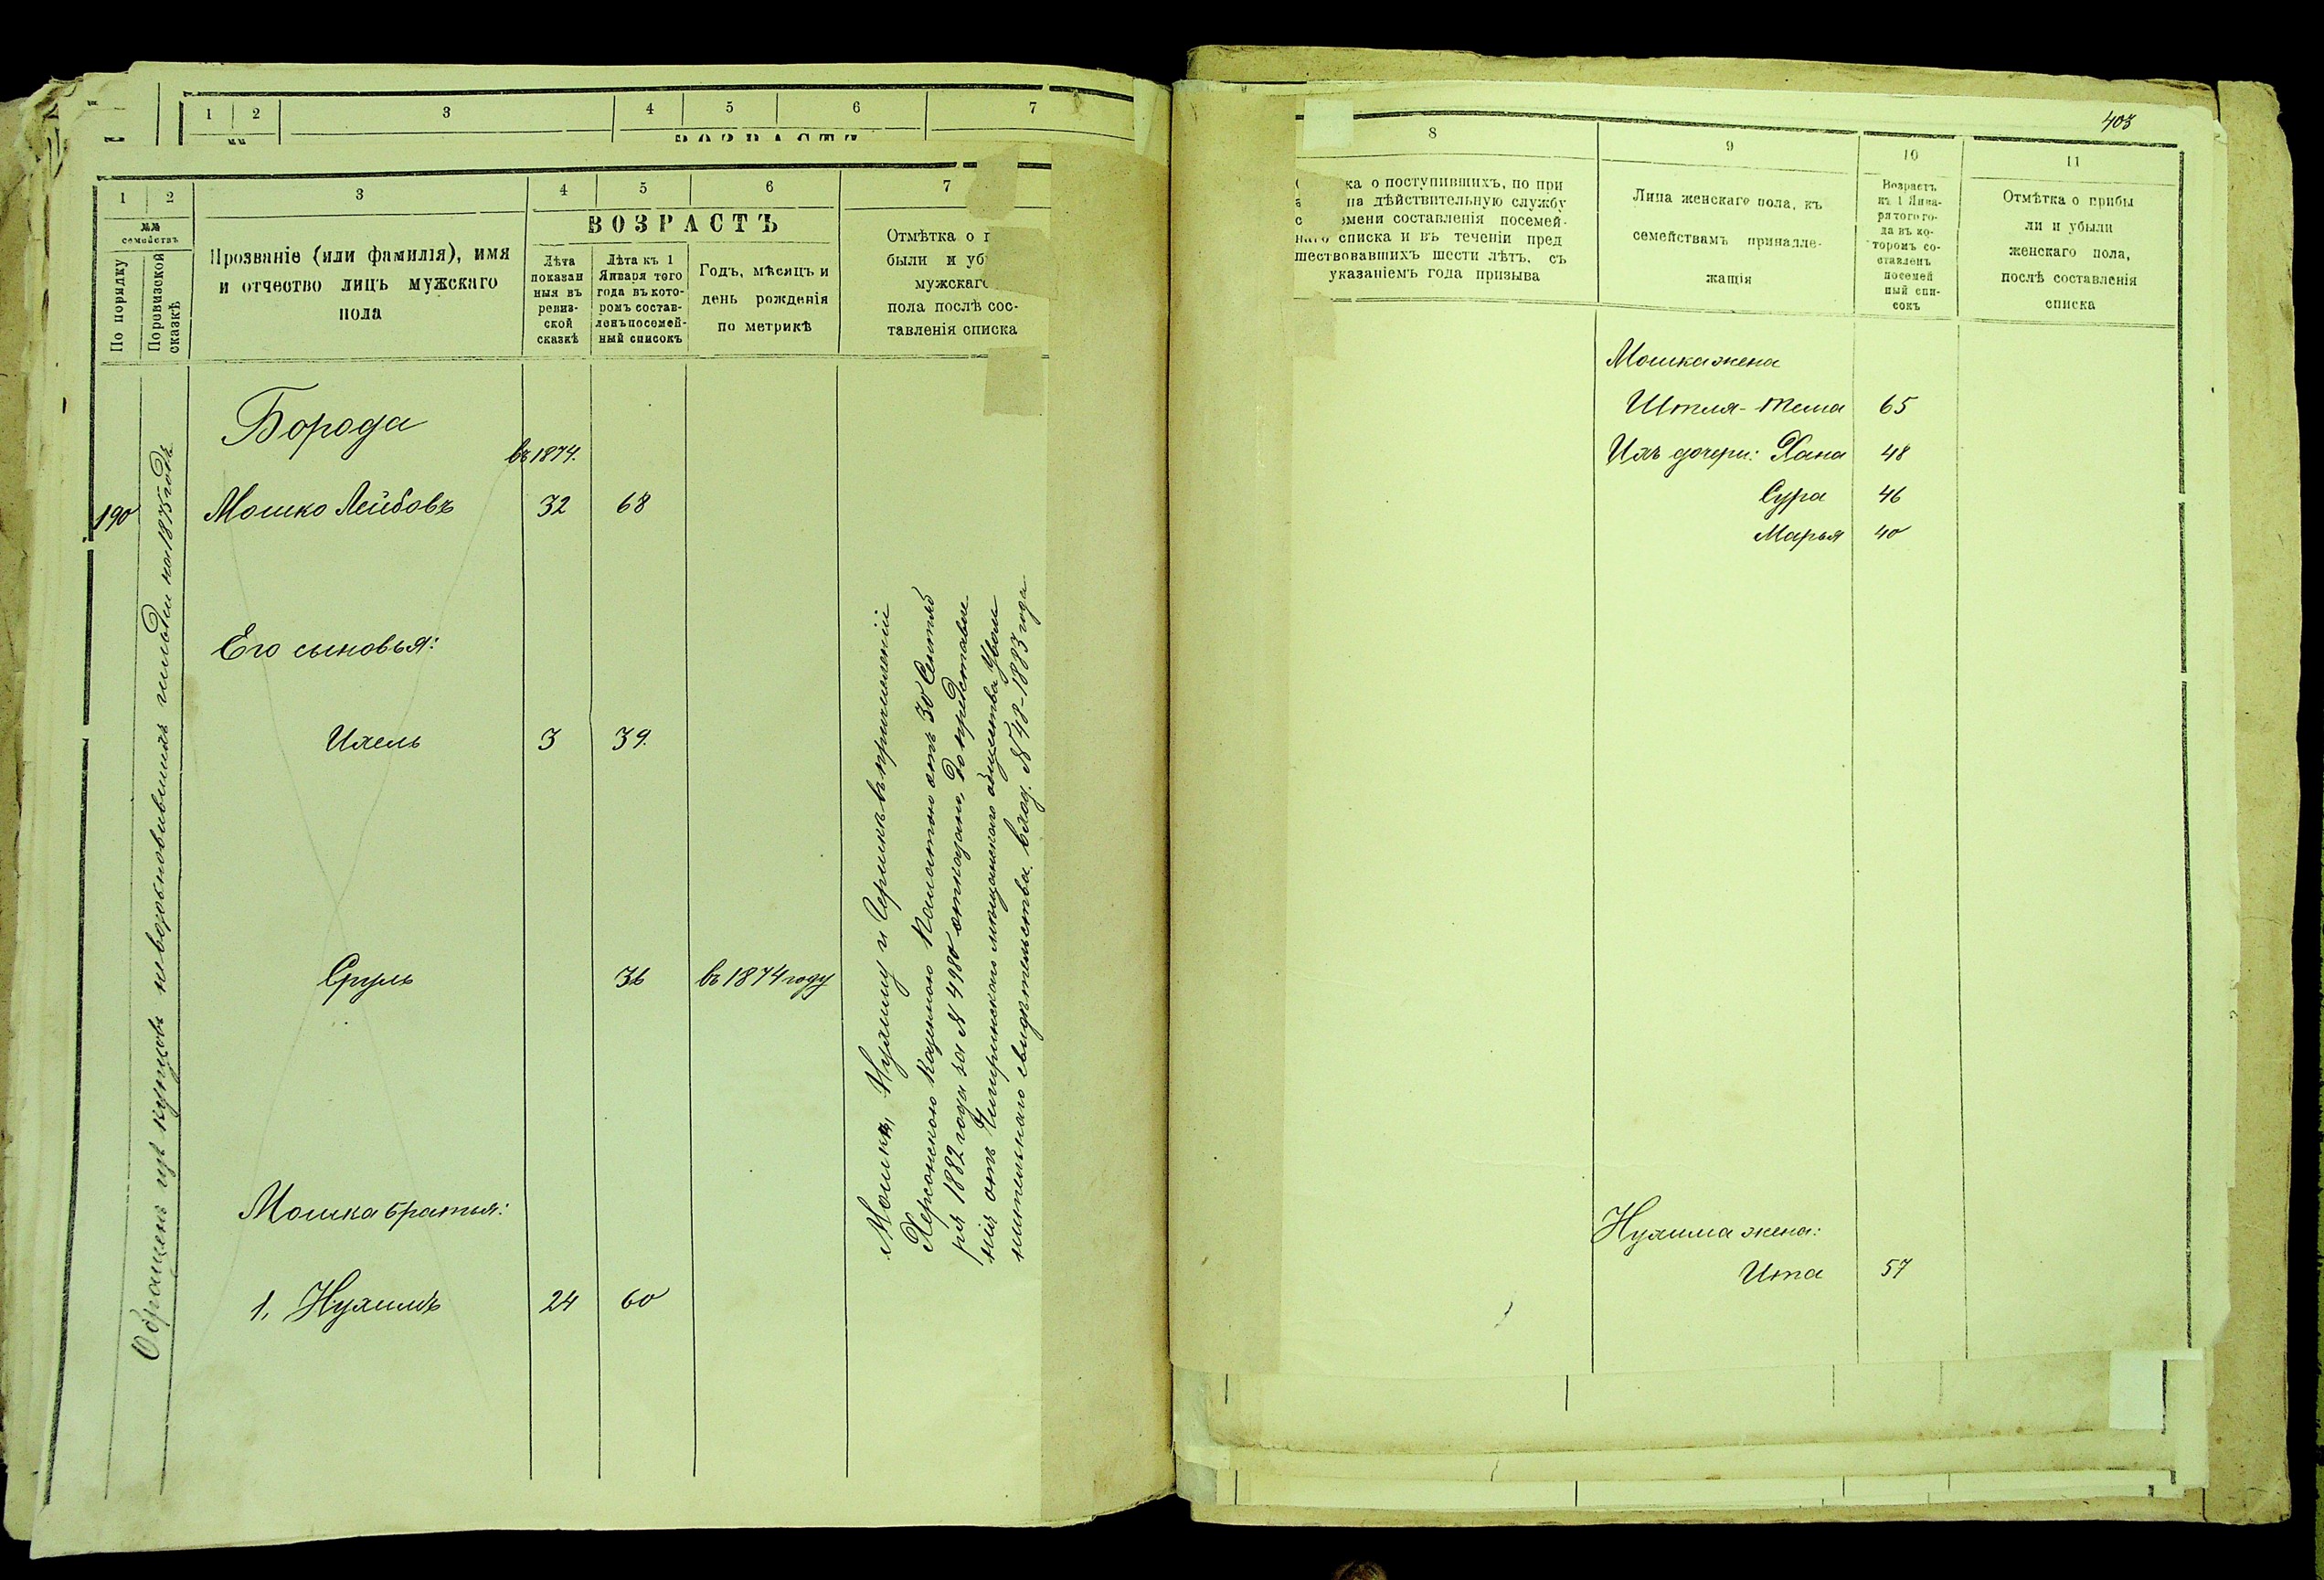 1 2 3 4 5 6 7
1 2 3 4 5 6 7
№№
семействъ
По порядку
По ревизской
сказкѣ
Прозваніе (или фамилія), имя
и отчество лицъ мужскаго
пола
ВОЗРАСТЪ
Лѣта
показан
ныя въ
ревиз-
ской
сказкѣ
Лѣта къ 1
Января того
года въ кото-
ромъ состав-
ленъ посемей-
ный списокъ
Годъ, мѣсяцъ и
день рожденія
по метрикѣ
Отмѣтка о
были и
мужскаго
пола послѣ сос-
тавленія списка
Борода
въ 1874.
190 Мошко Лейбовъ 32 68
Его сыновья:
Ихель 3 39.
Сруль 36 въ 1874 году
Мошка братья:
1, Нухимъ 24 60
Обращенъ изъ купцовъ невозобновившихъ гильдіи на 1875 годъ
Мошкѣ, Нухиму и Гершкѣ въ причисленіи
Херсонскою Казенною Палатою отъ 30 Сентяб
ря 1882 года за № 4980 отказано, до представле
нія отъ Чигиринскаго мѣщанскаго общества Уволь
нительнаго свидѣтельства. вход. № 48-1883 года
403
8 9 10 11
ка о поступившихъ, по при
на дѣйствительную службу
мени составленія посемей-
наго списка и въ теченіи пред
шествовавшихъ шести лѣтъ, съ
указаніемъ года призыва
Лица женскаго пола, къ
семействамъ принадле-
жащія
Возрастъ
къ 1 Янва-
ря того го-
да въ ко-
торомъ со-
ставленъ
посемей
ный спи-
сокъ
Отмѣтка о прибы
ли и убыли
женскаго пола,
послѣ составленія
списка
Мошка жена
65
Ихъ дочери: Хана 48
Сура 46
Марья 40
Нухима жена:
Ита 57